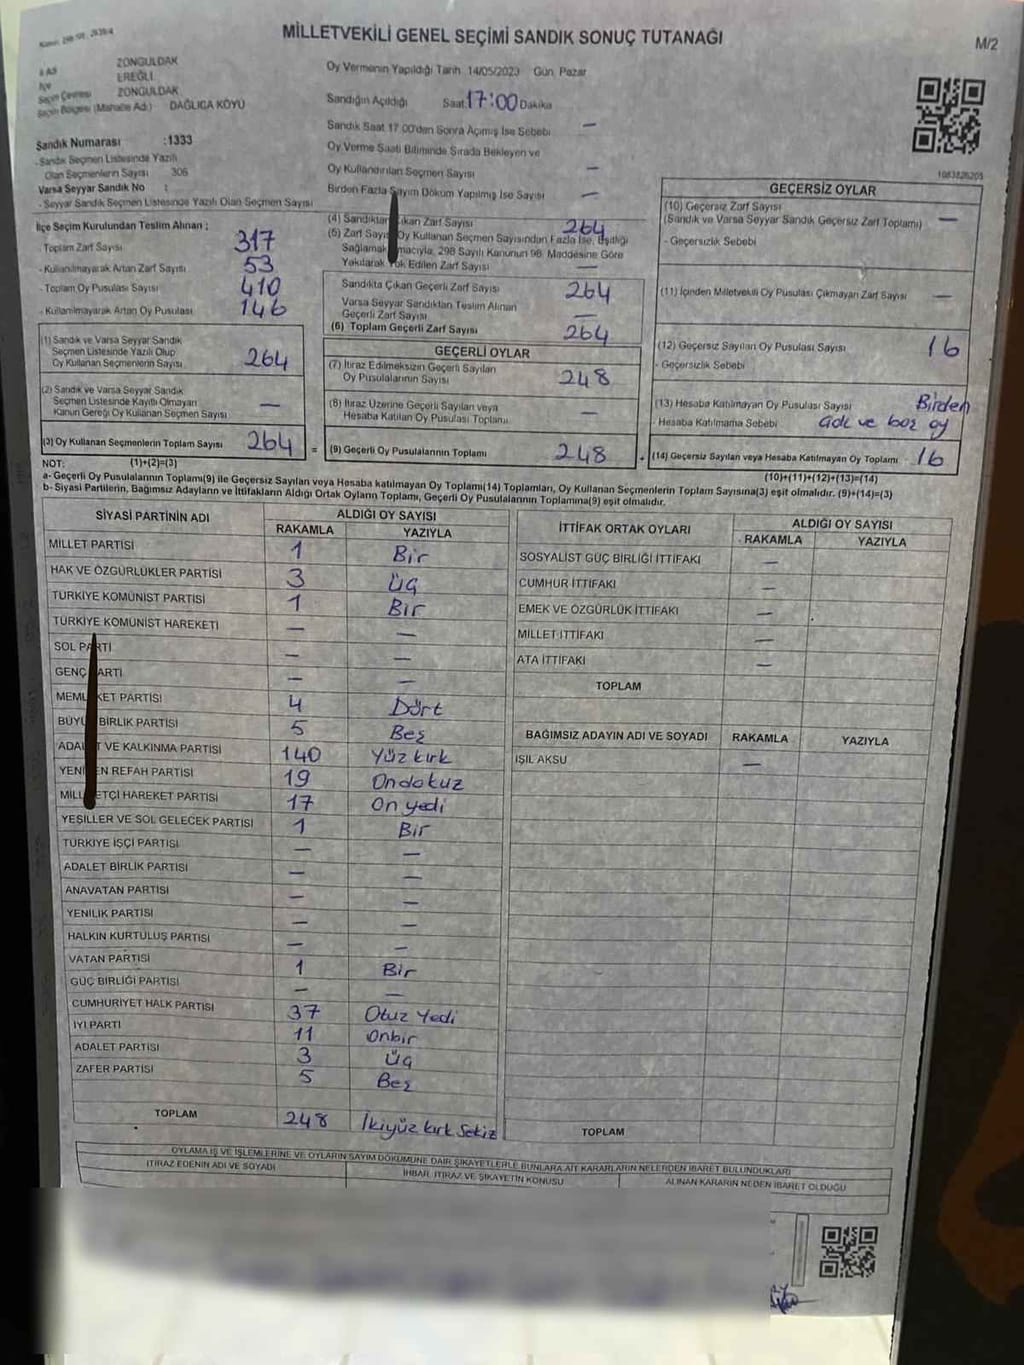 MİLLETVEKİLİ GENEL SEÇİMİ SANDIK SONUÇ TUTANAĞI
M/2
ZONGULDAK
EREĞLİ
Seçim Çevresi ZONGULDAK
Seçim Bölgesi (Mahalle Adı) DAĞLICA KÖYÜ
Sandık Numarası :1333
- Sandık Seçmen Listesinde Yazılı
Olan Seçmenlerin Sayısı 306
Varsa Seyyar Sandık No :
- Seyyar Sandık Seçmen Listesinde Yazılı Olan Seçmen Sayısı
Oy Vermenin Yapıldığı Tarih 14/05/2023 Gün Pazar
Sandığın Açıldığı Saat 17:00 Dakika
Sandık Saat 17.00'den Sonra Açılmış İse Sebebi —
Oy Verme Saati Bitiminde Sırada Bekleyen ve
Oy Kullandırılan Seçmen Sayısı —
Birden Fazla Sayım Döküm Yapılmış İse Sayısı —
1083826205
İlçe Seçim Kurulundan Teslim Alınan ;
- Toplam Zarf Sayısı 317
- Kullanılmayarak Artan Zarf Sayısı 53
- Toplam Oy Pusulası Sayısı 410
- Kullanılmayarak Artan Oy Pusulası 146
(1) Sandık ve Varsa Seyyar Sandık
Seçmen Listesinde Yazılı Olup
Oy Kullanan Seçmenlerin Sayısı 264
(2) Sandık ve Varsa Seyyar Sandık
Seçmen Listesinde Kayıtlı Olmayan
Kanun Gereği Oy Kullanan Seçmen Sayısı —
(3) Oy Kullanan Seçmenlerin Toplam Sayısı 264 =
(4) Sandıktan Çıkan Zarf Sayısı 264
(5) Zarf Sayısı Oy Kullanan Seçmen Sayısından Fazla İse, Eşitliği
Sağlamak macıyla, 298 Sayılı Kanunun 98. Maddesine Göre
Yakılarak Yok Edilen Zarf Sayısı —
Sandıkta Çıkan Geçerli Zarf Sayısı 264
Varsa Seyyar Sandıktan Teslim Alınan
Geçerli Zarf Sayısı —
(6) Toplam Geçerli Zarf Sayısı 264
GEÇERLİ OYLAR
(7) İtiraz Edilmeksizin Geçerli Sayılan
Oy Pusulalarının Sayısı 248
(8) İtiraz Üzerine Geçerli Sayılan veya
Hesaba Katılan Oy Pusulası Toplamı —
(9) Geçerli Oy Pusulalarının Toplamı 248 +
GEÇERSİZ OYLAR
(10) Geçersiz Zarf Sayısı
(Sandık ve Varsa Seyyar Sandık Geçersiz Zarf Toplamı) —
- Geçersizlik Sebebi
(11) İçinden Milletvekili Oy Pusulası Çıkmayan Zarf Sayısı —
(12) Geçersiz Sayılan Oy Pusulası Sayısı 16
- Geçersizlik Sebebi
(13) Hesaba Katılmayan Oy Pusulası Sayısı Birden
- Hesaba Katılmama Sebebi ve boş oy
(14) Geçersiz Sayılan veya Hesaba Katılmayan Oy Toplamı 16
NOT: (1)+(2)=(3) (10)+(11)+(12)+(13)=(14)
a- Geçerli Oy Pusulalarının Toplamı(9) ile Geçersiz Sayılan veya Hesaba Katılmayan Oy Toplamı(14) Toplamları, Oy Kullanan Seçmenlerin Toplam Sayısına(3) eşit olmalıdır. (9)+(14)=(3)
b- Siyasi Partilerin, Bağımsız Adayların ve İttifakların Aldığı Ortak Oyların Toplamı, Geçerli Oy Pusulalarının Toplamına(9) eşit olmalıdır.
SİYASİ PARTİNİN ADI ALDIĞI OY SAYISI
RAKAMLA YAZIYLA
MİLLET PARTİSİ 1 Bir
HAK VE ÖZGÜRLÜKLER PARTİSİ 3 Üç
TÜRKİYE KOMÜNİST PARTİSİ 1 Bir
TÜRKİYE KOMÜNİST HAREKETİ — —
SOL PARTİ — —
GENÇ PARTİ — —
MEMLEKET PARTİSİ 4 Dört
BÜYÜK BİRLİK PARTİSİ 5 Beş
ADALET VE KALKINMA PARTİSİ 140 Yüz kırk
YENİDEN REFAH PARTİSİ 19 Ondokuz
MİLLİYETÇİ HAREKET PARTİSİ 17 On yedi
YEŞİLLER VE SOL GELECEK PARTİSİ 1 Bir
TÜRKİYE İŞÇİ PARTİSİ — —
ADALET BİRLİK PARTİSİ — —
ANAVATAN PARTİSİ — —
YENİLİK PARTİSİ — —
HALKIN KURTULUŞ PARTİSİ — —
VATAN PARTİSİ 1 Bir
GÜÇ BİRLİĞİ PARTİSİ — —
CUMHURİYET HALK PARTİSİ 37 Otuz Yedi
İYİ PARTİ 11 Onbir
ADALET PARTİSİ 3 Üç
ZAFER PARTİSİ 5 Beş
TOPLAM 248 İkiyüz kırk Sekiz
İTTİFAK ORTAK OYLARI ALDIĞI OY SAYISI
RAKAMLA YAZIYLA
SOSYALİST GÜÇ BİRLİĞİ İTTİFAKI —
CUMHUR İTTİFAKI —
EMEK VE ÖZGÜRLÜK İTTİFAKI —
MİLLET İTTİFAKI —
ATA İTTİFAKI —
TOPLAM
BAĞIMSIZ ADAYIN ADI VE SOYADI RAKAMLA YAZIYLA
IŞIL AKSU —
TOPLAM
OYLAMA İŞ VE İŞLEMLERİNE VE OYLARIN SAYIM DÖKÜMÜNE DAİR ŞİKAYETLERLE BUNLARA AİT KARARLARIN NELERDEN İBARET BULUNDUKLARI
İTİRAZ EDENİN ADI VE SOYADI İHBAR, İTİRAZ VE ŞİKAYETİN KONUSU ALINAN KARARIN NEDEN İBARET OLDUĞU